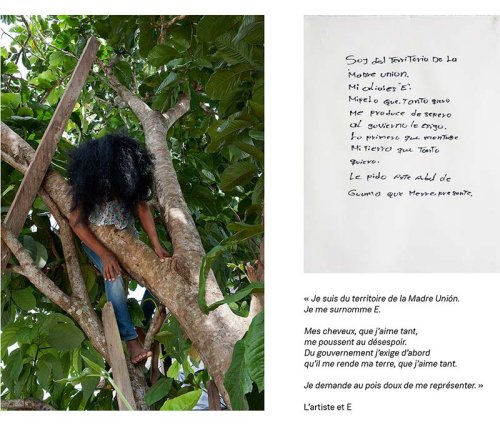 Soy del Territorio De La
Madre union.
Mi alias es E.
Mipelo que Tanto quiero
Me produce desespero
al govierno le exigo.
Lo primero que
Mi Tierra que Tanto
quiero.
Le pido Este Arbol de
Guamo que Me rrepresente.
« Je suis du territoire de la Madre Unión.
Je me surnomme E.
Mes cheveux, que j’aime tant,
me poussent au désespoir.
Du gouvernement j’exige d’abord
qu’il me rende ma terre, que j’aime tant.
Je demande au pois doux de me représenter. »
L’artiste et E